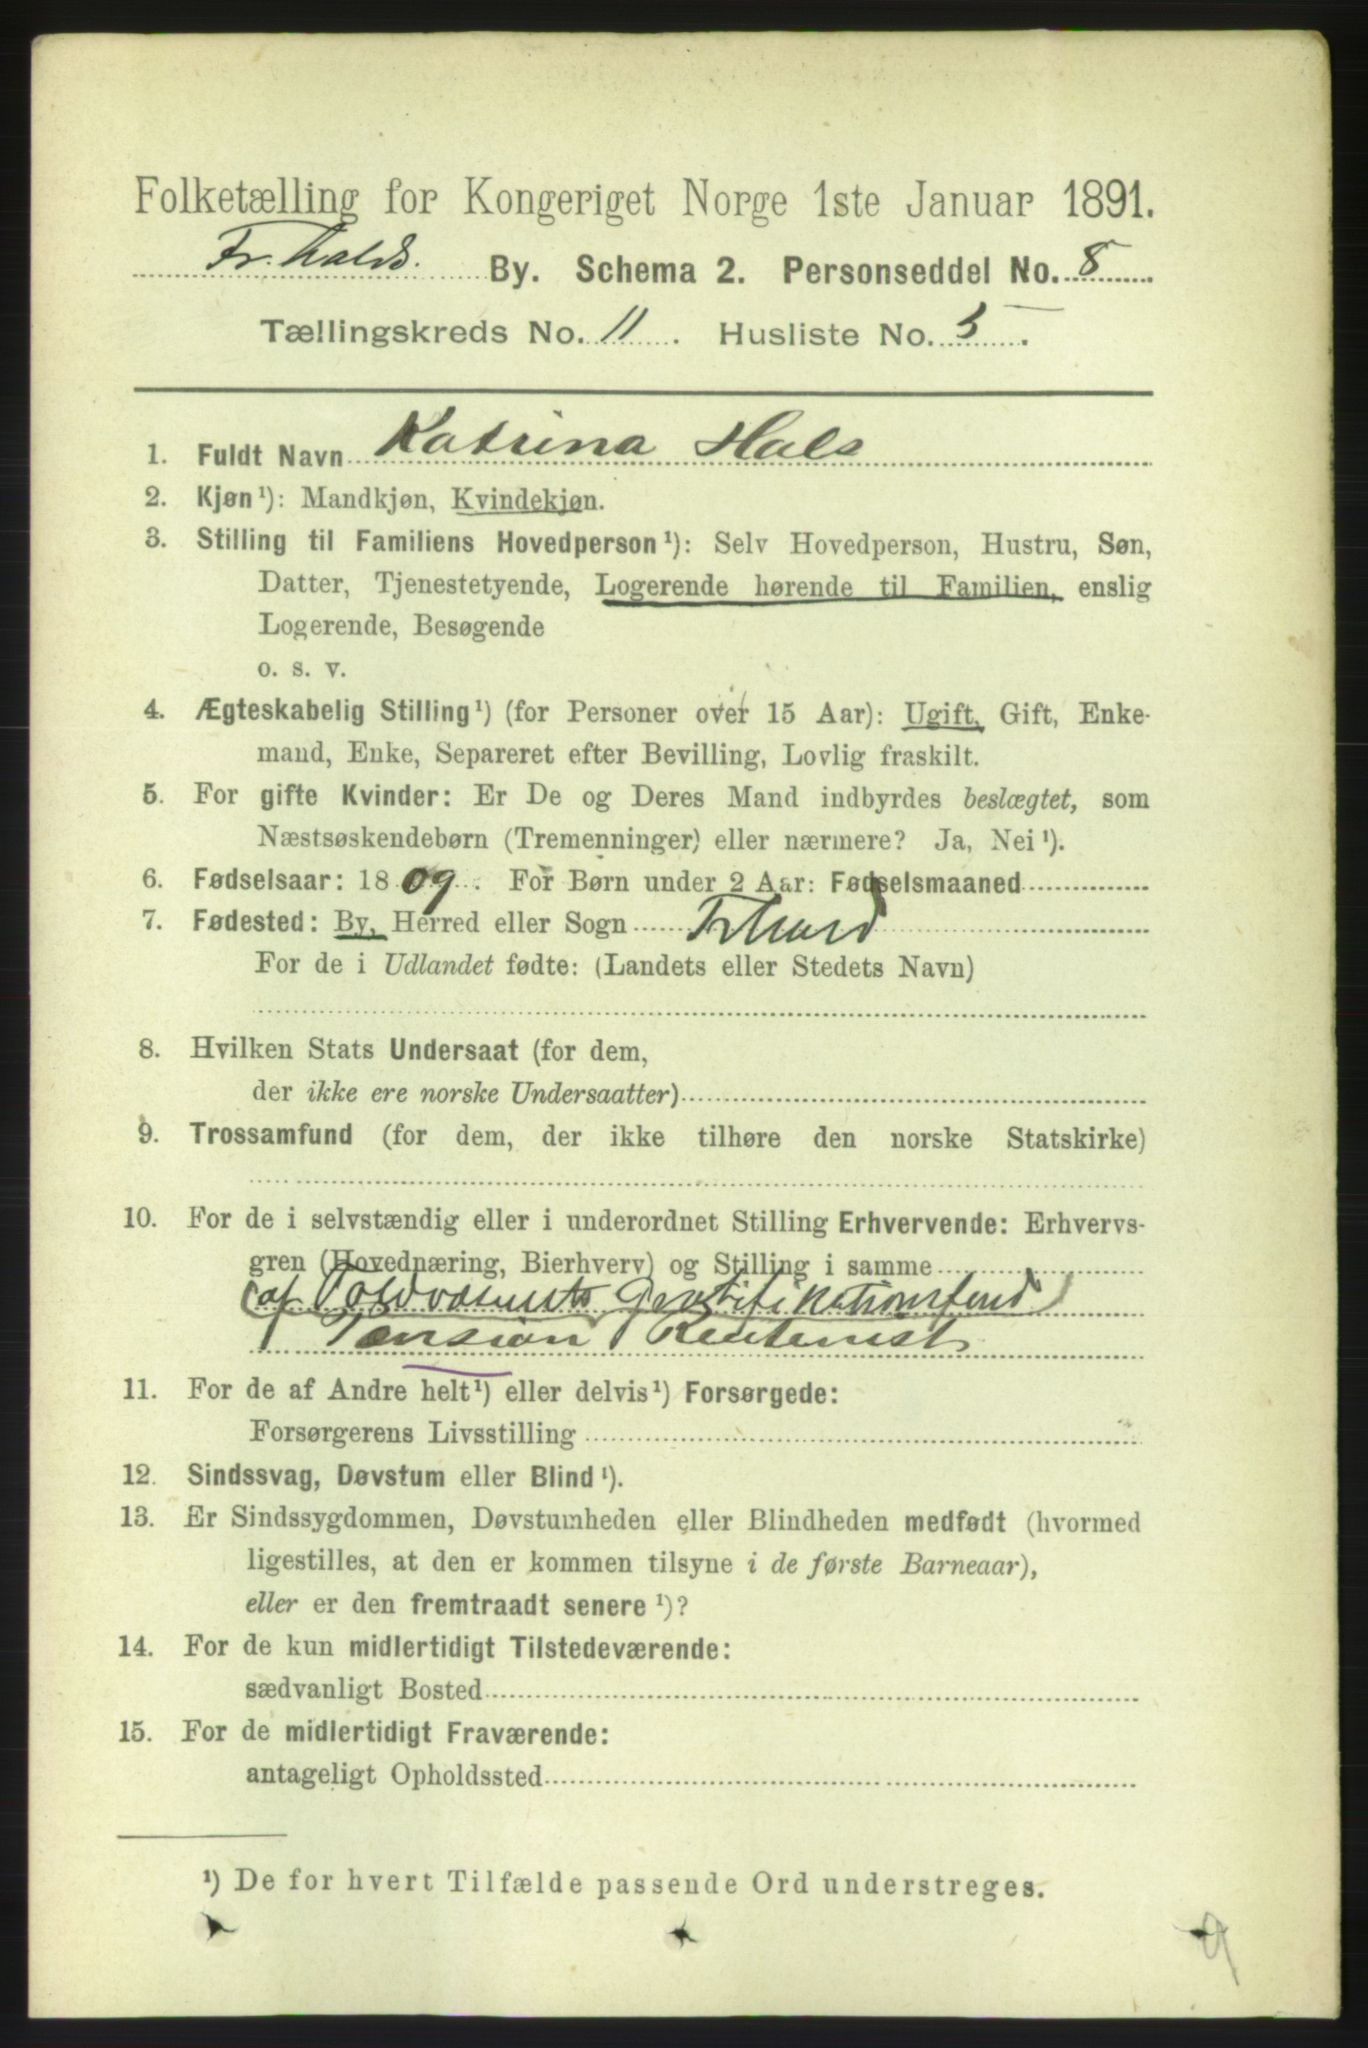 Folketælling for Kongeriget Norge 1ste Januar 1891.
Fr.halds. By. Schema 2. Personseddel No. 8.
Tællingskreds No. 11. Husliste No. 5.
1. Fuldt Navn Katrina Hals
2. Kjøn ¹): Mandkjøn, Kvindekjøn.
3. Stilling til Familiens Hovedperson ¹): Selv Hovedperson, Hustru, Søn,
Datter, Tjenestetyende, Logerende hørende til Familien, enslig
Logerende, Besøgende
o. s. v.
4. Ægteskabelig Stilling ¹) (for Personer over 15 Aar): Ugift, Gift, Enke-
mand, Enke, Separeret efter Bevilling, Lovlig fraskilt.
5. For gifte Kvinder: Er De og Deres Mand indbyrdes beslægtet, som
Næstsøskendebørn (Tremenninger) eller nærmere? Ja, Nei ¹).
6. Fødselsaar: 1809. For Børn under 2 Aar: Fødselsmaaned
7. Fødested: By, Herred eller Sogn Frhald
For de i Udlandet fødte: (Landets eller Stedets Navn)
8. Hvilken Stats Undersaat (for dem,
der ikke ere norske Undersaatter)
9. Trossamfund (for dem, der ikke tilhøre den norske Statskirke)
10. For de i selvstændig eller i underordnet Stilling Erhvervende: Erhvervs-
gren (Hovednæring, Bierhverv) og Stilling i samme
(af Toldvæsenets Gratifikationsfond)
Pension Rentenist
11. For de af Andre helt ¹) eller delvis ¹) Forsørgede:
Forsørgerens Livsstilling
12. Sindssvag, Døvstum eller Blind ¹).
13. Er Sindssygdommen, Døvstumheden eller Blindheden medfødt (hvormed
ligestilles, at den er kommen tilsyne i de første Barneaar),
eller er den fremtraadt senere ¹)?
14. For de kun midlertidigt Tilstedeværende:
sædvanligt Bosted
15. For de midlertidigt Fraværende:
antageligt Opholdssted
¹) De for hvert Tilfælde passende Ord understreges.
9